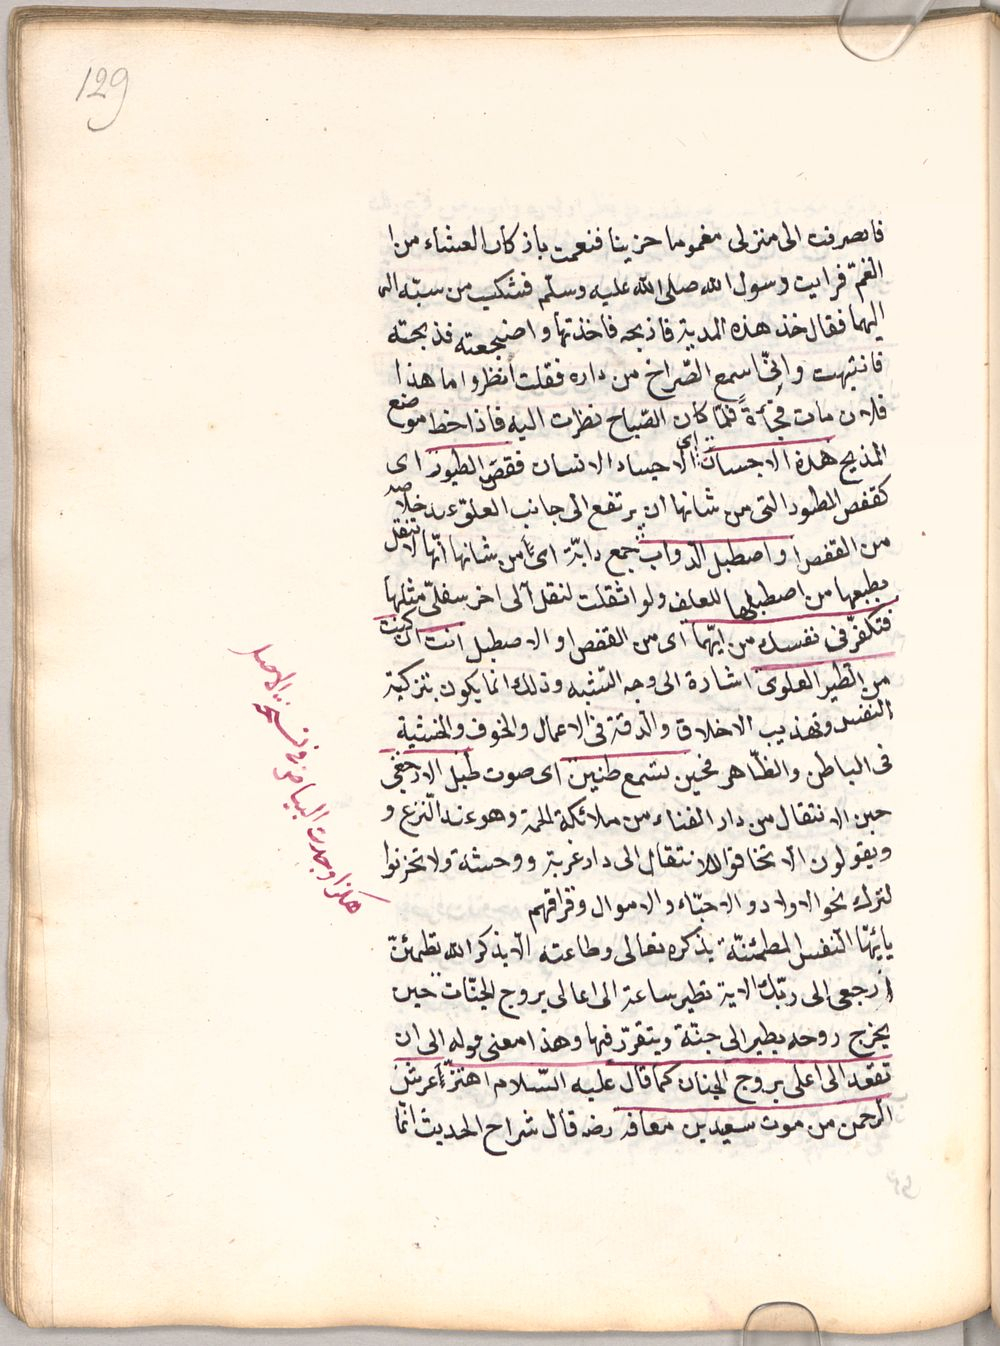 129
فانصرفت الى منزلى مغموما حزينا فنعمت باذ كان العشاء من ا
الغمّ فرايت رسول الله صلى الله عليه وسلّم فشكيت من سبّه اليه
اليهما فقال خذ هذه المدية فاذبحه فاخذتها واضجعته فذبحته
فانتبهت وانّى اسمع الصّراخ من داره فقلت انظروا ما هذا
فلان مات فجأةً فلمّا كان الصّباح نظرت اليه فاذا خط موضع
المذبح هذه الاجساد اى الاجساد الانسان فقصّ الطيور اى
كقفص الطيور التى من شانها ان يرتفع الى جانب العلق عند خلاصه
من القفص او اصطبل الدّواب جمع دابّة اى من شانها انّها لا تنتقل
بطبعها من اصطبلها للعلف ولو انتقلت لنقل الى اخر سفلىّ مثلها
فتكفّر فى نفسك من ايّهما اى من القفص او الاصطبل انت ان كنت
من الطير العلوى اشارة الى وجه التشبه وذلك انما يكون بتزكية
النفس وتهذيب الاخلاق والدقة فى الاعمال والخوف والخشية
فى الباطن والظّاهر فحين تسمع طنين اى صوت طبل الارجعى
حين الانتقال من دار الفناء من ملائكة الرحمة وهو عند النّزع و
ويقولون الا تخافوا للانتقال الى دار غربة ووحشة ولا تحزنوا
لترك نحو الاولاد والاحبّاء والاموال وفراقهم
يايّتها النّفس المطمئنّة بذكره تعالى وطاعته الا بذكر الله تطمئنّ
ارجعى الى ربّك الاية تطير ساعة الى اعالى بروج الجنّات حين
يخرج روحه يطير الى جنّة ويتقرّر فيها وهذا معنى قوله الى ان
تقعد الى اعلى بروج الجنان كما قال عليه السّلام اهتزّ عرش
الرّحمن من موت سعد بن معاذ رضه قال شراح الحديث انّما
هكذا وجدت البياض فى نسخة الاصل